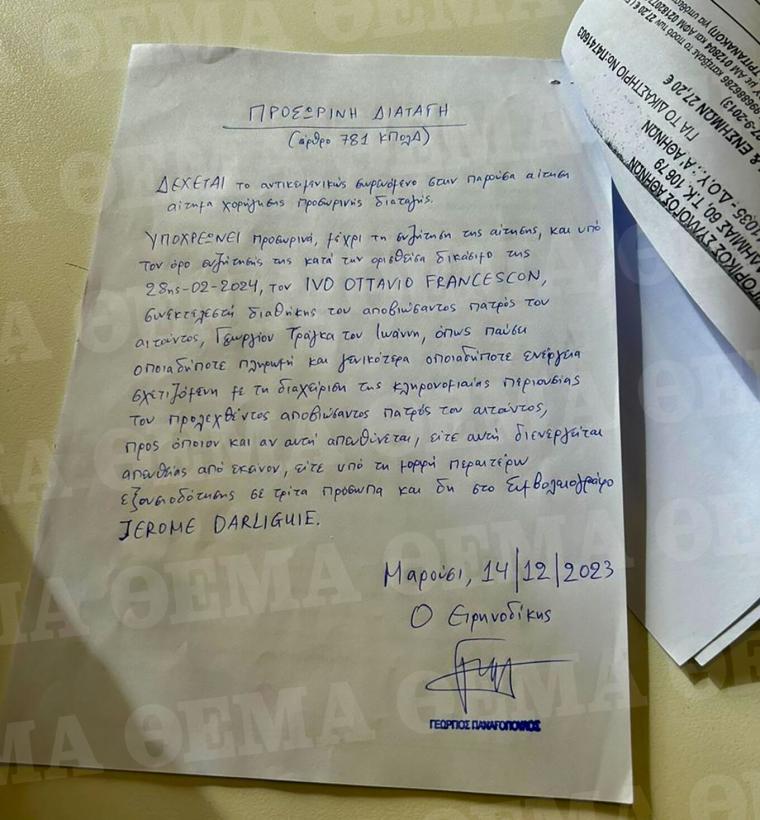 ΠΡΟΣΩΡΙΝΗ ΔΙΑΤΑΓΗ
(άρθρο 781 ΚΠολΔ)
ΔΕΧΕΤΑΙ το αντικειμενικώς σωρευόμενο στην παρούσα αίτηση
αίτημα χορήγησης προσωρινής διαταγής.
ΥΠΟΧΡΕΩΝΕΙ προσωρινά, μέχρι τη συζήτηση της αίτησης, και υπό
τον όρο συζήτησής της κατά την ορισθείσα δικάσιμο της
28ης-02-2024, τον IVO OTTAVIO FRANCESCON,
συνεκτελεστή διαθήκης του αποβιώσαντος πατρός του
αιτούντος, Γεωργίου Τράγκα του Ιωάννη, όπως παύσει
οποιαδήποτε πληρωμή και γενικότερα οποιαδήποτε ενέργεια
σχετιζόμενη με τη διαχείριση της κληρονομιαίας περιουσίας
του προλεχθέντος αποβιώσαντος πατρός του αιτούντος,
προς όποιον και αν αυτή απευθύνεται, είτε αυτή διενεργείται
απευθείας από εκείνον, είτε υπό τη μορφή περαιτέρω
εξουσιοδότησης σε τρίτα πρόσωπα και δη στο Συμβολαιογράφο
JEROME DARLIGUIE.
Μαρούσι, 14/12/2023
Ο Ειρηνοδίκης
ΓΕΩΡΓΙΟΣ ΠΑΝΑΓΟΠΟΥΛΟΣ
ΓΙΑ ΤΟ ΔΙΚΑΣΤΗΡΙΟ Νο:Π4741603
& ΕΝΣΗΜΩΝ 27,20 €
ΣΥΛΛΟΓΟΣ ΑΘΗΝΩΝ
60, Τ.Κ. 10679
Δ.Ο.Υ.: Α' ΑΘΗΝΩΝ
ΘΕΜΑ